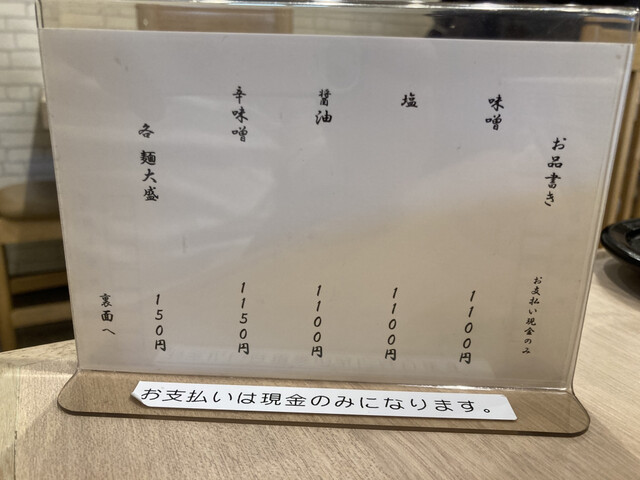 お品書き
お支払い現金のみ
味噌
1100円
塩
1100円
醤油
1100円
辛味噌
1150円
各麺大盛
150円
裏面へ
お支払いは現金のみになります。